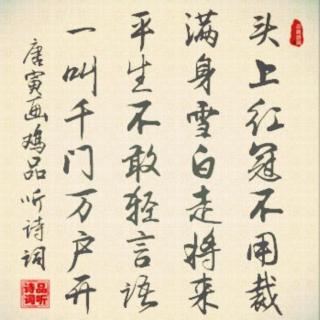 头上红冠不用裁
满身雪白走将来
平生不敢轻言语
一叫千门万户开
唐寅画鸡品听诗词
品听诗词